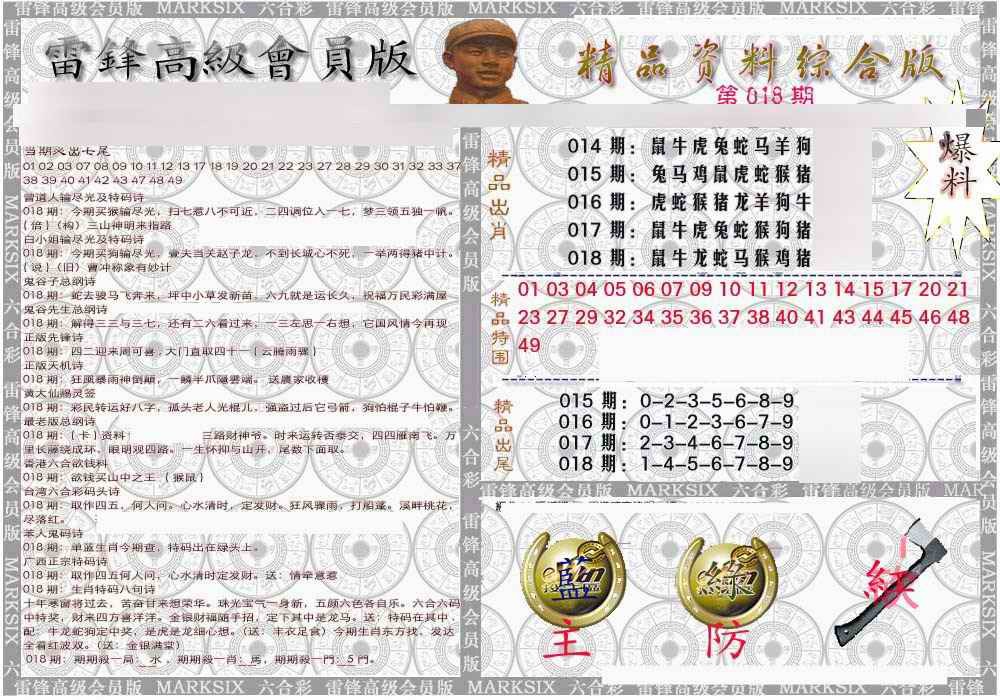 雷锋高级会员版 MARKSIX 六合彩 雷锋高级会员版 MARKSIX 六合彩 雷锋高级会员版 MARKSIX 六合彩
雷鋒高級會員版
精品资料综合版
第018期
当期灵出七尾
01 02 03 07 08 09 10 11 12 13 17 18 19 20 21 22 23 27 28 29 30 31 32 33 37
38 39 40 41 42 43 47 48 49
曾道人输尽光及特码诗
018 期：今期买猴输尽光，扫七惹八不可近，二四调位入一七，梦三领五独一帆。
{倍}（构）三山神明来指路
白小姐输尽光及特码诗
018 期：今期买狗输尽光，壹夫当关赵子龙，不到长城心不死，一举两得猪中计。
{说}（旧）曹冲称象有妙计
鬼谷子总纲诗
018 期：蛇去骏马飞奔来，坪中小草发新苗，六九就是运长久，祝福万民彩满屋
鬼谷先生总纲诗
018 期：解得三三与三七，还有二六看过来，一三左思一右想，它国风情今再现
正版先锋诗
018 期：四二迎来周可喜，大门直取四十一｛云腾雨骤｝
正版天机诗
018 期：狂風暴雨神倒颠，一鳞半爪隱雲端。送農家收穫
黄大仙赐灵签
018 期：彩民转运好八字，孤头老人光棍儿，强盗过后它弓箭，狗怕棍子牛怕鞭。
最老版总纲诗
018 期：{卡}资料： 三路财神爷。时来运转否泰交，四四雁南飞。万
里长藤绕成环。眼明观四路。一生怀抑与山开，尾数下面取。
香港六合欲钱料
018 期：欲钱买山中之王 {猴鼠}
台湾六合彩码头诗
018 期：取作四五，何人问。心水清时，定发财。狂风骤雨，打船蓬。溪畔桃花，
尽落红。
苯人鬼码诗
018 期：单蓝生肖今期查，特码出在绿头上。
广西正宗特码诗
018 期：取作四五何人问，心水清时定发财。送：情牵意惹
018 期：生肖特码八句诗
十年寒窗将过去，苦奋甘来想荣华。珠光宝气一身新，五颜六色各自乐。六合六码
中特奖，财来四方喜洋洋。金银财福随手招，定下其中是龙马。送：特码在其中，
配：牛龙蛇狗定中奖，是虎是龙细心想。（送：丰衣足食）今期生肖东方找，发达
全看红波双。（送：金银满堂）
018 期：期期殺一局：水，期期殺一肖：馬，期期殺一門：5 門。
精品出肖
014 期：鼠牛虎兔蛇马羊狗
015 期：兔马鸡鼠虎蛇猴猪
016 期：虎蛇猴猪龙羊狗牛
017 期：鼠牛虎兔蛇猴狗猪
018 期：鼠牛龙蛇马猴鸡猪
爆料
精品特围
01 03 04 05 06 07 09 10 11 12 13 14 15 17 20 21
23 27 29 32 34 35 36 37 38 40 41 43 44 45 46 48
49
精品出尾
015 期：0-2-3-5-6-8-9
016 期：0-1-2-3-6-7-9
017 期：2-3-4-6-7-8-9
018 期：1-4-5-6-7-8-9
雷锋高级会员版 MARKSIX 六合彩 雷锋高级会员版 MARK
藍
主
綠
防
紅
雷锋高级会员版 MARKSIX 六合彩 雷锋高级会员版 MARKSIX 六合彩 雷锋高级会员版 MARKSIX 六合彩